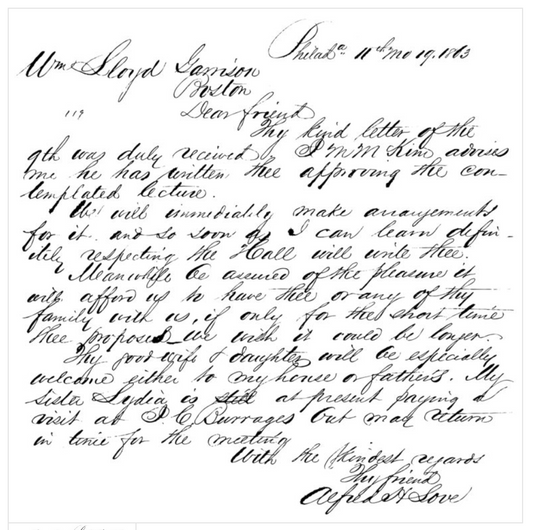 Philada 11th Mo 19. 1863
Wm Lloyd Garrison
Boston
119
Dear friend
Thy kind letter of the
9th was duly received, J M McKim advises
me he has written thee approving the con-
templated lecture.
We will immediately make arrangements
for it. and so soon as I can learn defin-
itely respecting the Hall will write thee.
Meanwhile be assured of the pleasure it
will afford us to have thee or any of thy
family with us, if only for the short time
thee proposes we wish it could be longer.
Thy good wife & daughter will be especially
welcome either to my house or father's. My
sister Lydia is still at present paying a
visit at J. C. Burrages but may return
in time for the meeting
With the kindest regards
Thy friend
Alfred H Love